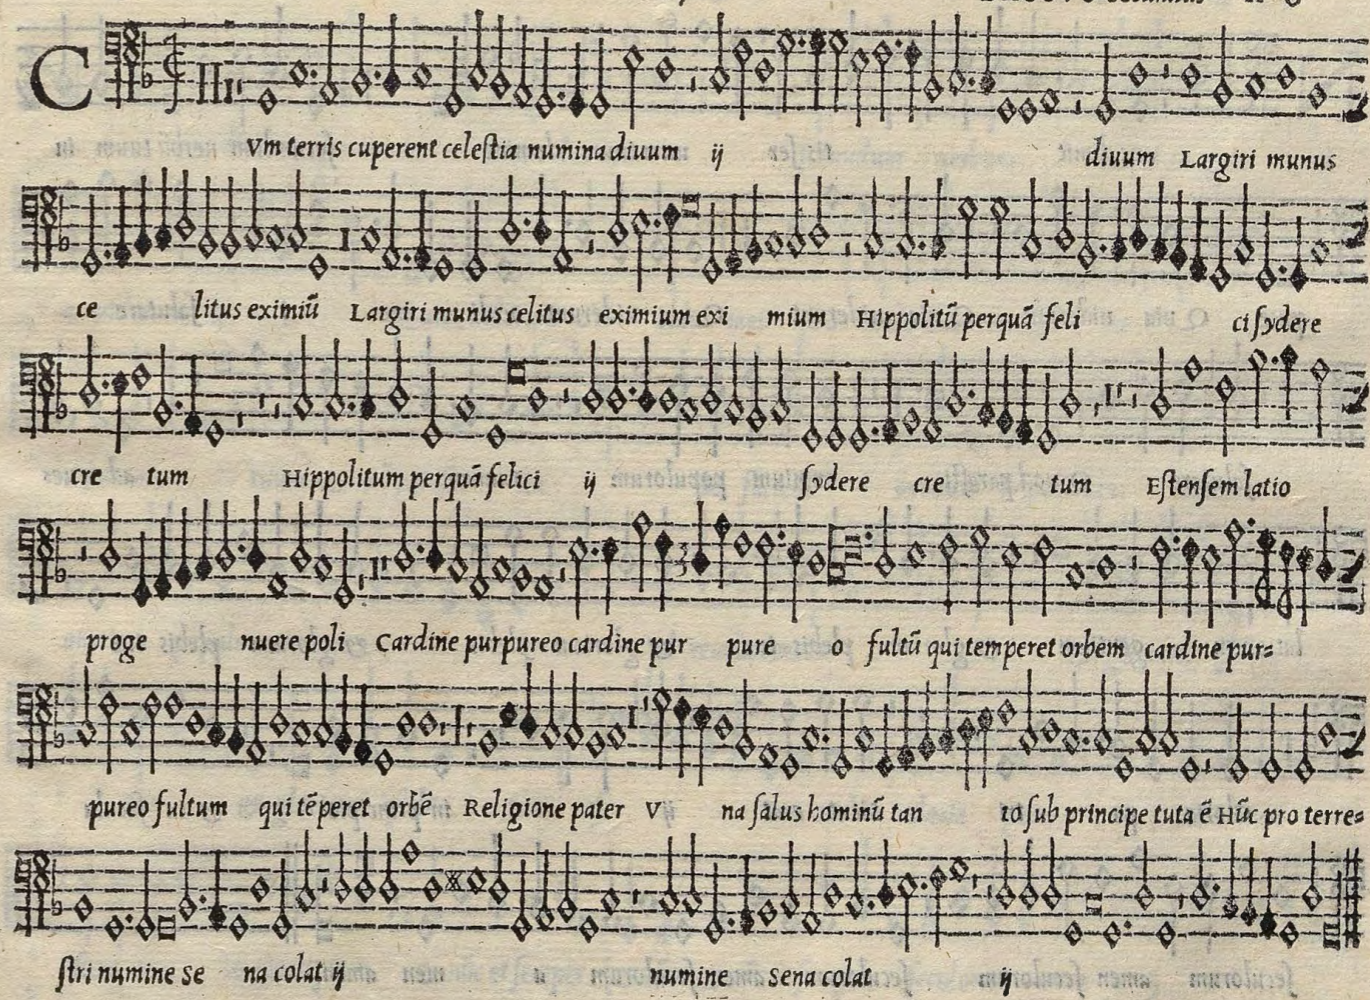 C
Vm terris cuperent celeſtia numina diuum ij diuum Largiri munus
ce litus eximiū Largiri munus celitus eximium exi mium Hippolitū perquā feli ci ſydere
cre tum Hippolitum perquā felici ij ſydere cre tum Eſtenſem latio
proge nuere poli Cardine purpureo cardine pur pure o fultū qui temperet orbem cardine pur=
pureo fultum qui tēperet orbē Religione pater V na ſalus hominū tan to ſub principe tuta ē Hūc pro terre=
ſtri numine Se na colat ij numine Sena colat ij